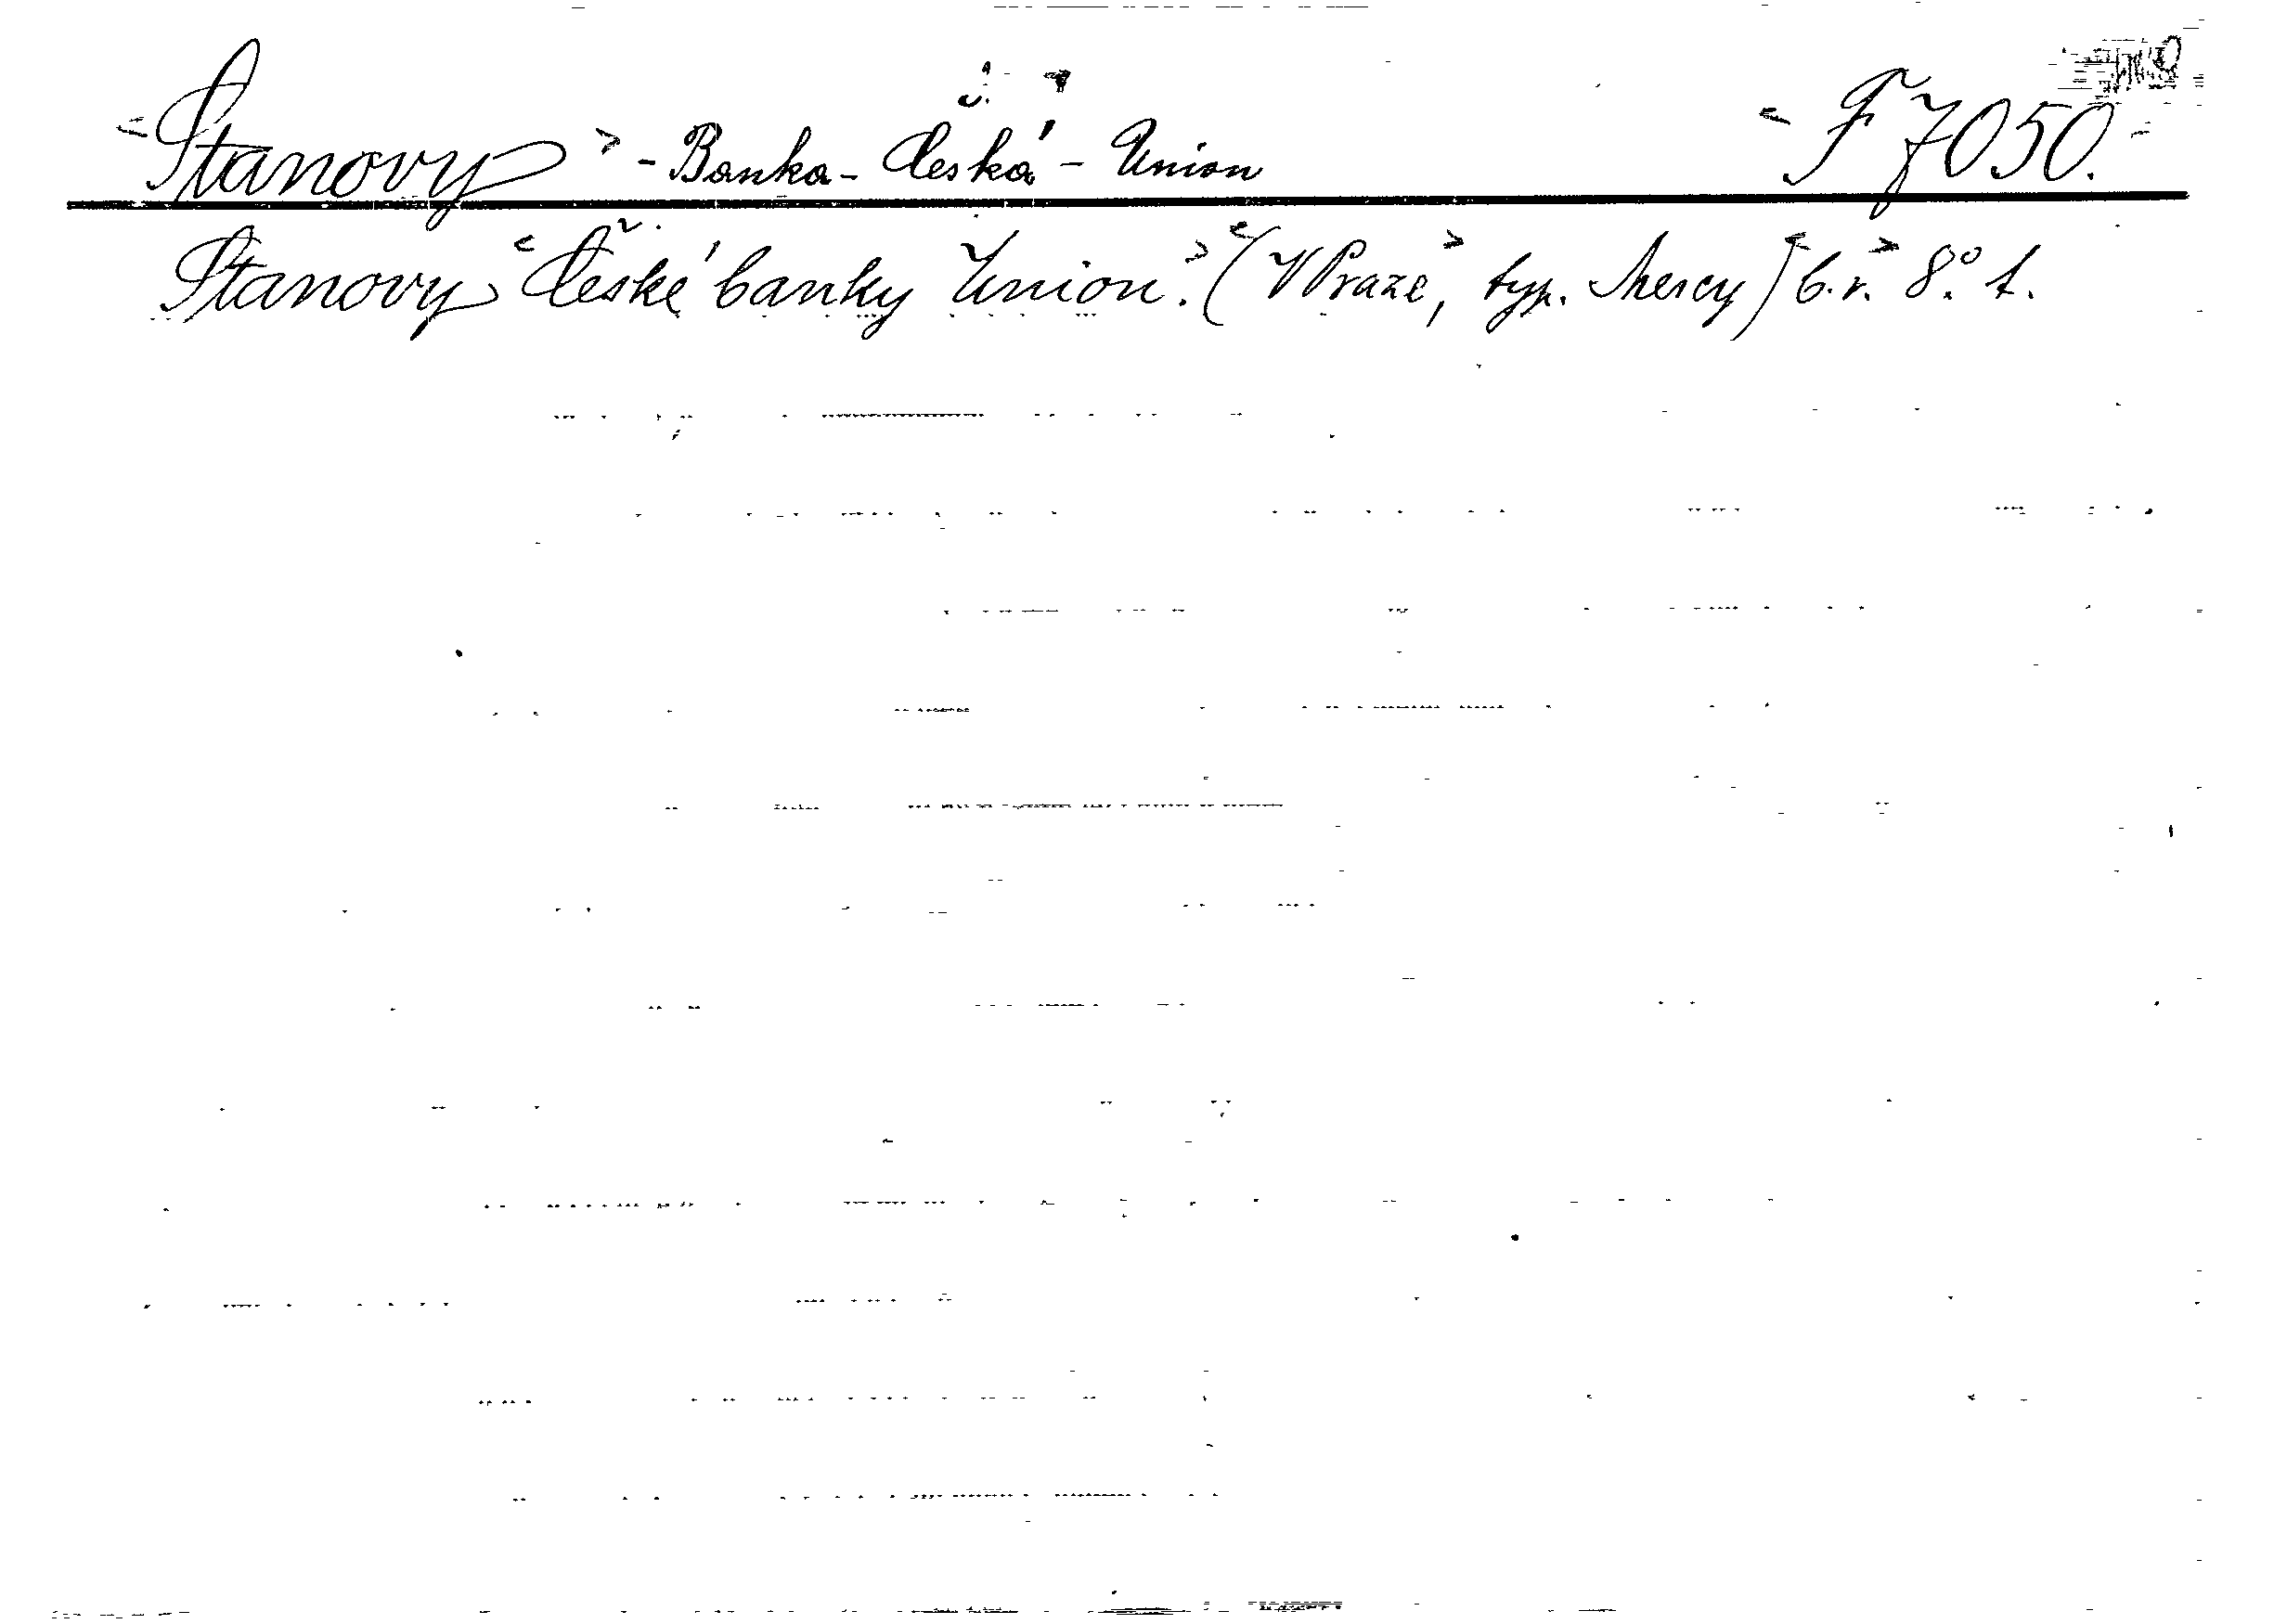 Stanovy - Banka - Česká - Union F 7050.
Stanovy České banky Union. (V Praze, typ. Mercy) b. r. 8.° t.